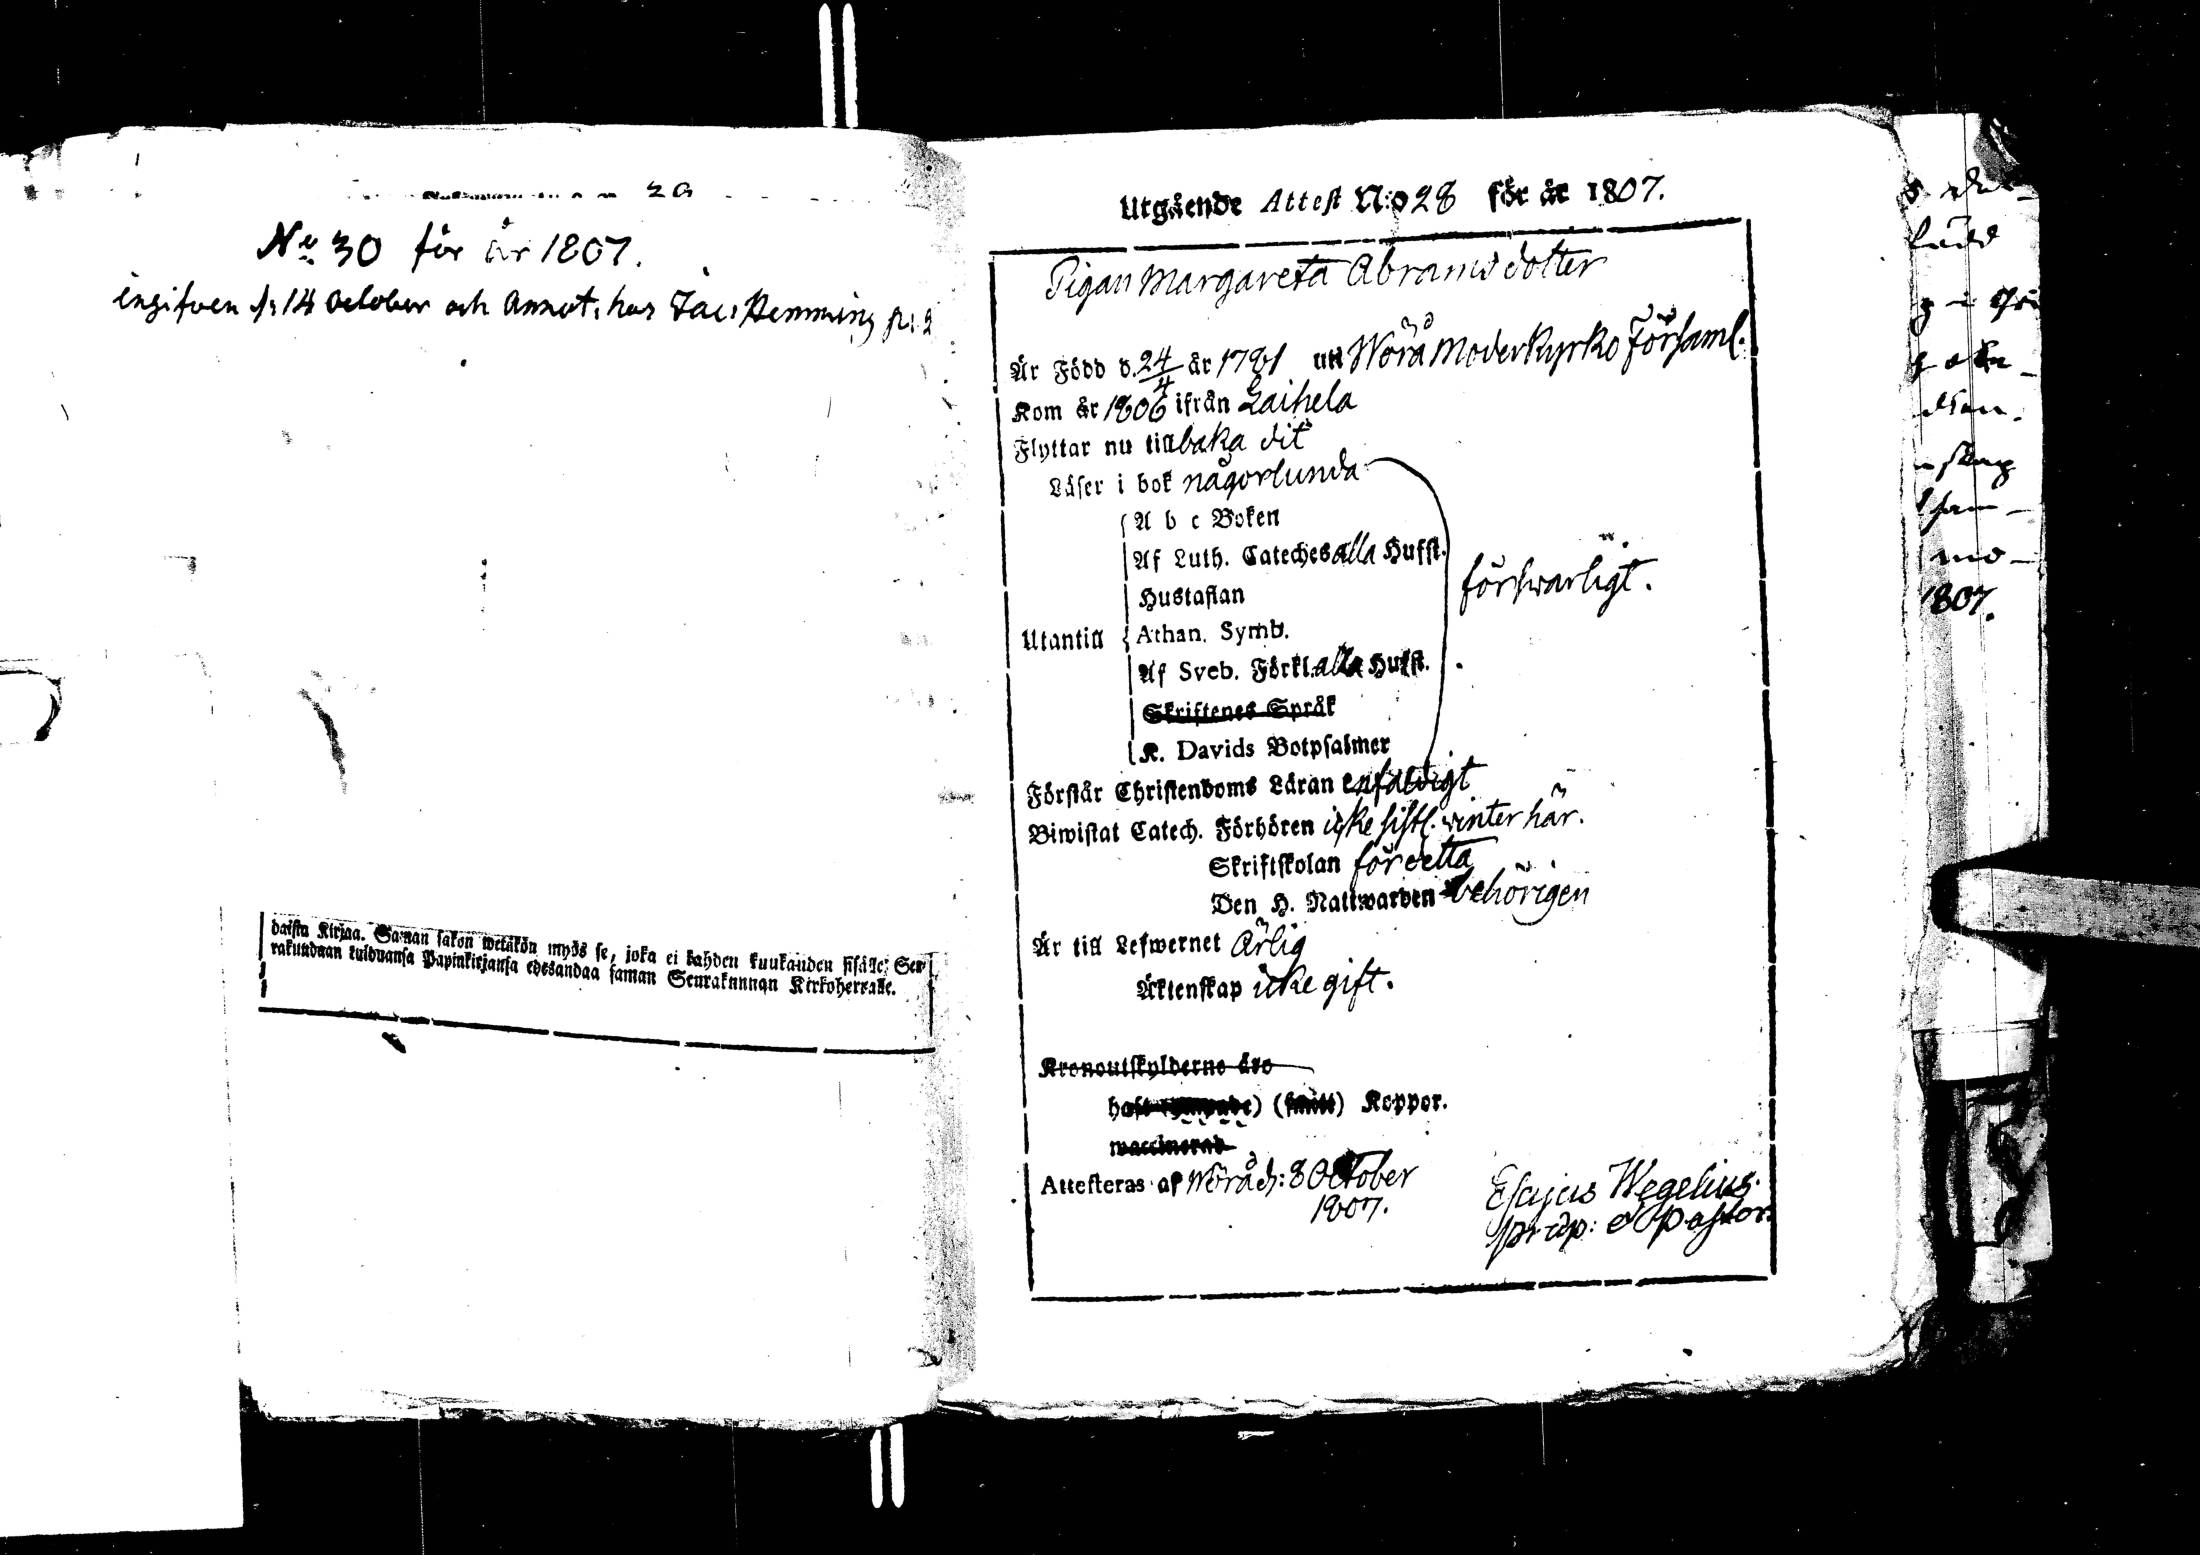 No 30 för år 1807.
ingifven d. 14 October och Annot. hos Jac. Hemming
daista Kirjaa. Saman sakon wetäkön myös se, joka ei kahden kuukauden sisälle, Seu-
rakundaan tulduansa Papinkirjansa edesandaa saman Seurakunnan Kirkoherralle.
Utgående Attest N:o 28 för år 1807.
Pigan Margareta Abramsdotter
Är Född d. 24/4 år 1781 uti Wörå Moderkyrko Församl.
Kom år 1806 ifrån Laihela
Flyttar nu tillbaka dit
Läser i bok någorlunda
A b c Boken
Af Luth. Cateches alla Hufst.
Hustaflan
försvarligt.
Utantill Athan. Symb.
Af Sveb. Förkl. alla Hufst.
Skriftenes Språk
K. Davids Botpsalmer
Förstår Christendoms Läran enfaldigt
Biwistat Catech. Förhören icke sistl. winter här.
Skriftskolan för detta
Den H. Nattwarden behörigen
Är till Lefwernet Ärlig
Äktenskap icke gift.
Kronoutskylderne äro
haft (smått) Koppor.
waccinerad
Attesteras af Wörå d: 8 October
1807.
Esajas Wegelius
Pastor.
1807.